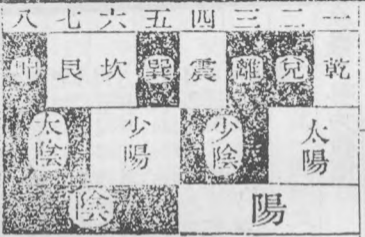 八 七 六 五 四 三 二 一
坤 艮 坎 巽 震 離 兌 乾
太陰 少陽 少陰 太陽
陰 陽